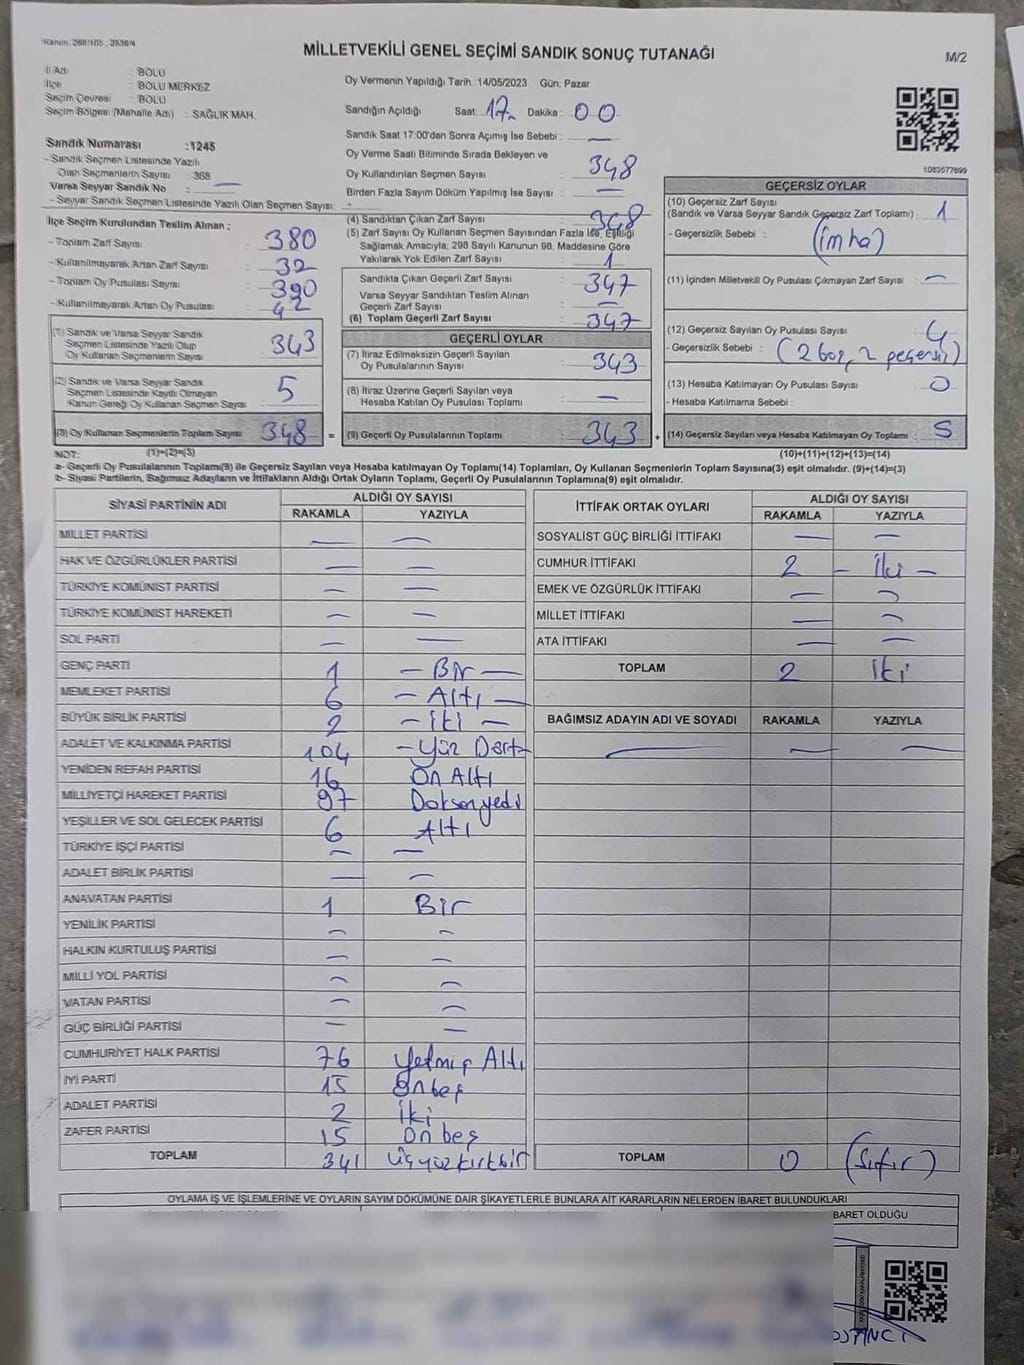 Kanun, 298/105, 2839/4
MİLLETVEKİLİ GENEL SEÇİMİ SANDIK SONUÇ TUTANAĞI
M/2
İl Adı : BOLU
İlçe : BOLU MERKEZ
Seçim Çevresi : BOLU
Seçim Bölgesi (Mahalle Adı) : SAĞLIK MAH.
Sandık Numarası :1245
- Sandık Seçmen Listesinde Yazılı
Olan Seçmenlerin Sayısı : 368
Varsa Seyyar Sandık No : —
- Seyyar Sandık Seçmen Listesinde Yazılı Olan Seçmen Sayısı: -
Oy Vermenin Yapıldığı Tarih :14/05/2023 Gün: Pazar
Sandığın Açıldığı Saat: 17 Dakika : 00
Sandık Saat 17:00'den Sonra Açımış İse Sebebi : —
Oy Verme Saati Bitiminde Sırada Bekleyen ve
Oy Kullandırılan Seçmen Sayısı : 348
Birden Fazla Sayım Döküm Yapılmış İse Sayısı : —
1083577699
İlçe Seçim Kurulundan Teslim Alınan ;
- Toplam Zarf Sayısı : 380
- Kullanılmayarak Artan Zarf Sayısı : 32
- Toplam Oy Pusulası Sayısı : 390
- Kullanılmayarak Artan Oy Pusulası : 42
(1) Sandık ve Varsa Seyyar Sandık
Seçmen Listesinde Yazılı Olup
Oy Kullanan Seçmenlerin Sayısı : 343
(2) Sandık ve Varsa Seyyar Sandık
Seçmen Listesinde Kayıtlı Olmayan
Kanun Gereği Oy Kullanan Seçmen Sayısı : 5
(3) Oy Kullanan Seçmenlerin Toplam Sayısı : 348 =
(4) Sandıktan Çıkan Zarf Sayısı : 348
(5) Zarf Sayısı Oy Kullanan Seçmen Sayısından Fazla İse, Eşitliği
Sağlamak Amacıyla; 298 Sayılı Kanunun 98. Maddesine Göre
Yakılarak Yok Edilen Zarf Sayısı : 1
Sandıkta Çıkan Geçerli Zarf Sayısı : 347
Varsa Seyyar Sandıktan Teslim Alınan
Geçerli Zarf Sayısı : —
(6) Toplam Geçerli Zarf Sayısı : 347
GEÇERLİ OYLAR
(7) İtiraz Edilmeksizin Geçerli Sayılan
Oy Pusulalarının Sayısı : 343
(8) İtiraz Üzerine Geçerli Sayılan veya
Hesaba Katılan Oy Pusulası Toplamı : —
(9) Geçerli Oy Pusulalarının Toplamı : 343 +
GEÇERSİZ OYLAR
(10) Geçersiz Zarf Sayısı
(Sandık ve Varsa Seyyar Sandık Geçersiz Zarf Toplamı) : 1
- Geçersizlik Sebebi : (imha)
(11) İçinden Milletvekili Oy Pusulası Çıkmayan Zarf Sayısı : —
(12) Geçersiz Sayılan Oy Pusulası Sayısı : 4
- Geçersizlik Sebebi : (2 boş, 2 geçersiz)
(13) Hesaba Katılmayan Oy Pusulası Sayısı : 0
- Hesaba Katılmama Sebebi :
(14) Geçersiz Sayılan veya Hesaba Katılmayan Oy Toplamı : 5
NOT: (1)+(2)=(3) (10)+(11)+(12)+(13)=(14)
a- Geçerli Oy Pusulalarının Toplamı(9) ile Geçersiz Sayılan veya Hesaba katılmayan Oy Toplamı(14) Toplamları, Oy Kullanan Seçmenlerin Toplam Sayısına(3) eşit olmalıdır. (9)+(14)=(3)
b- Siyasi Partilerin, Bağımsız Adayların ve İttifakların Aldığı Ortak Oyların Toplamı, Geçerli Oy Pusulalarının Toplamına(9) eşit olmalıdır.
SİYASİ PARTİNİN ADI ALDIĞI OY SAYISI
RAKAMLA YAZIYLA
MİLLET PARTİSİ — —
HAK VE ÖZGÜRLÜKLER PARTİSİ — —
TÜRKİYE KOMÜNİST PARTİSİ — —
TÜRKİYE KOMÜNİST HAREKETİ — —
SOL PARTİ — —
GENÇ PARTİ 1 — Bir —
MEMLEKET PARTİSİ 6 — Altı —
BÜYÜK BİRLİK PARTİSİ 2 — iki —
ADALET VE KALKINMA PARTİSİ 104 — Yüz Dört
YENİDEN REFAH PARTİSİ 16 On Altı
MİLLİYETÇİ HAREKET PARTİSİ 97 Doksanyedi
YEŞİLLER VE SOL GELECEK PARTİSİ 6 Altı
TÜRKİYE İŞÇİ PARTİSİ — —
ADALET BİRLİK PARTİSİ — —
ANAVATAN PARTİSİ 1 Bir
YENİLİK PARTİSİ — —
HALKIN KURTULUŞ PARTİSİ — —
MİLLİ YOL PARTİSİ — —
VATAN PARTİSİ — —
GÜÇ BİRLİĞİ PARTİSİ — —
CUMHURİYET HALK PARTİSİ 76 Yetmiş Altı
İYİ PARTİ 15 Onbeş
ADALET PARTİSİ 2 İki
ZAFER PARTİSİ 15 Onbeş
TOPLAM 341 Üçyüzkırkbir
İTTİFAK ORTAK OYLARI ALDIĞI OY SAYISI
RAKAMLA YAZIYLA
SOSYALİST GÜÇ BİRLİĞİ İTTİFAKI — —
CUMHUR İTTİFAKI 2 — İki —
EMEK VE ÖZGÜRLÜK İTTİFAKI — —
MİLLET İTTİFAKI — —
ATA İTTİFAKI — —
TOPLAM 2 İki
BAĞIMSIZ ADAYIN ADI VE SOYADI RAKAMLA YAZIYLA
— — —
TOPLAM 0 (Sıfır)
OYLAMA İŞ VE İŞLEMLERİNE VE OYLARIN SAYIM DÖKÜMÜNE DAİR ŞİKAYETLERLE BUNLARA AİT KARARLARIN NELERDEN İBARET BULUNDUKLARI
BARET OLDUĞU